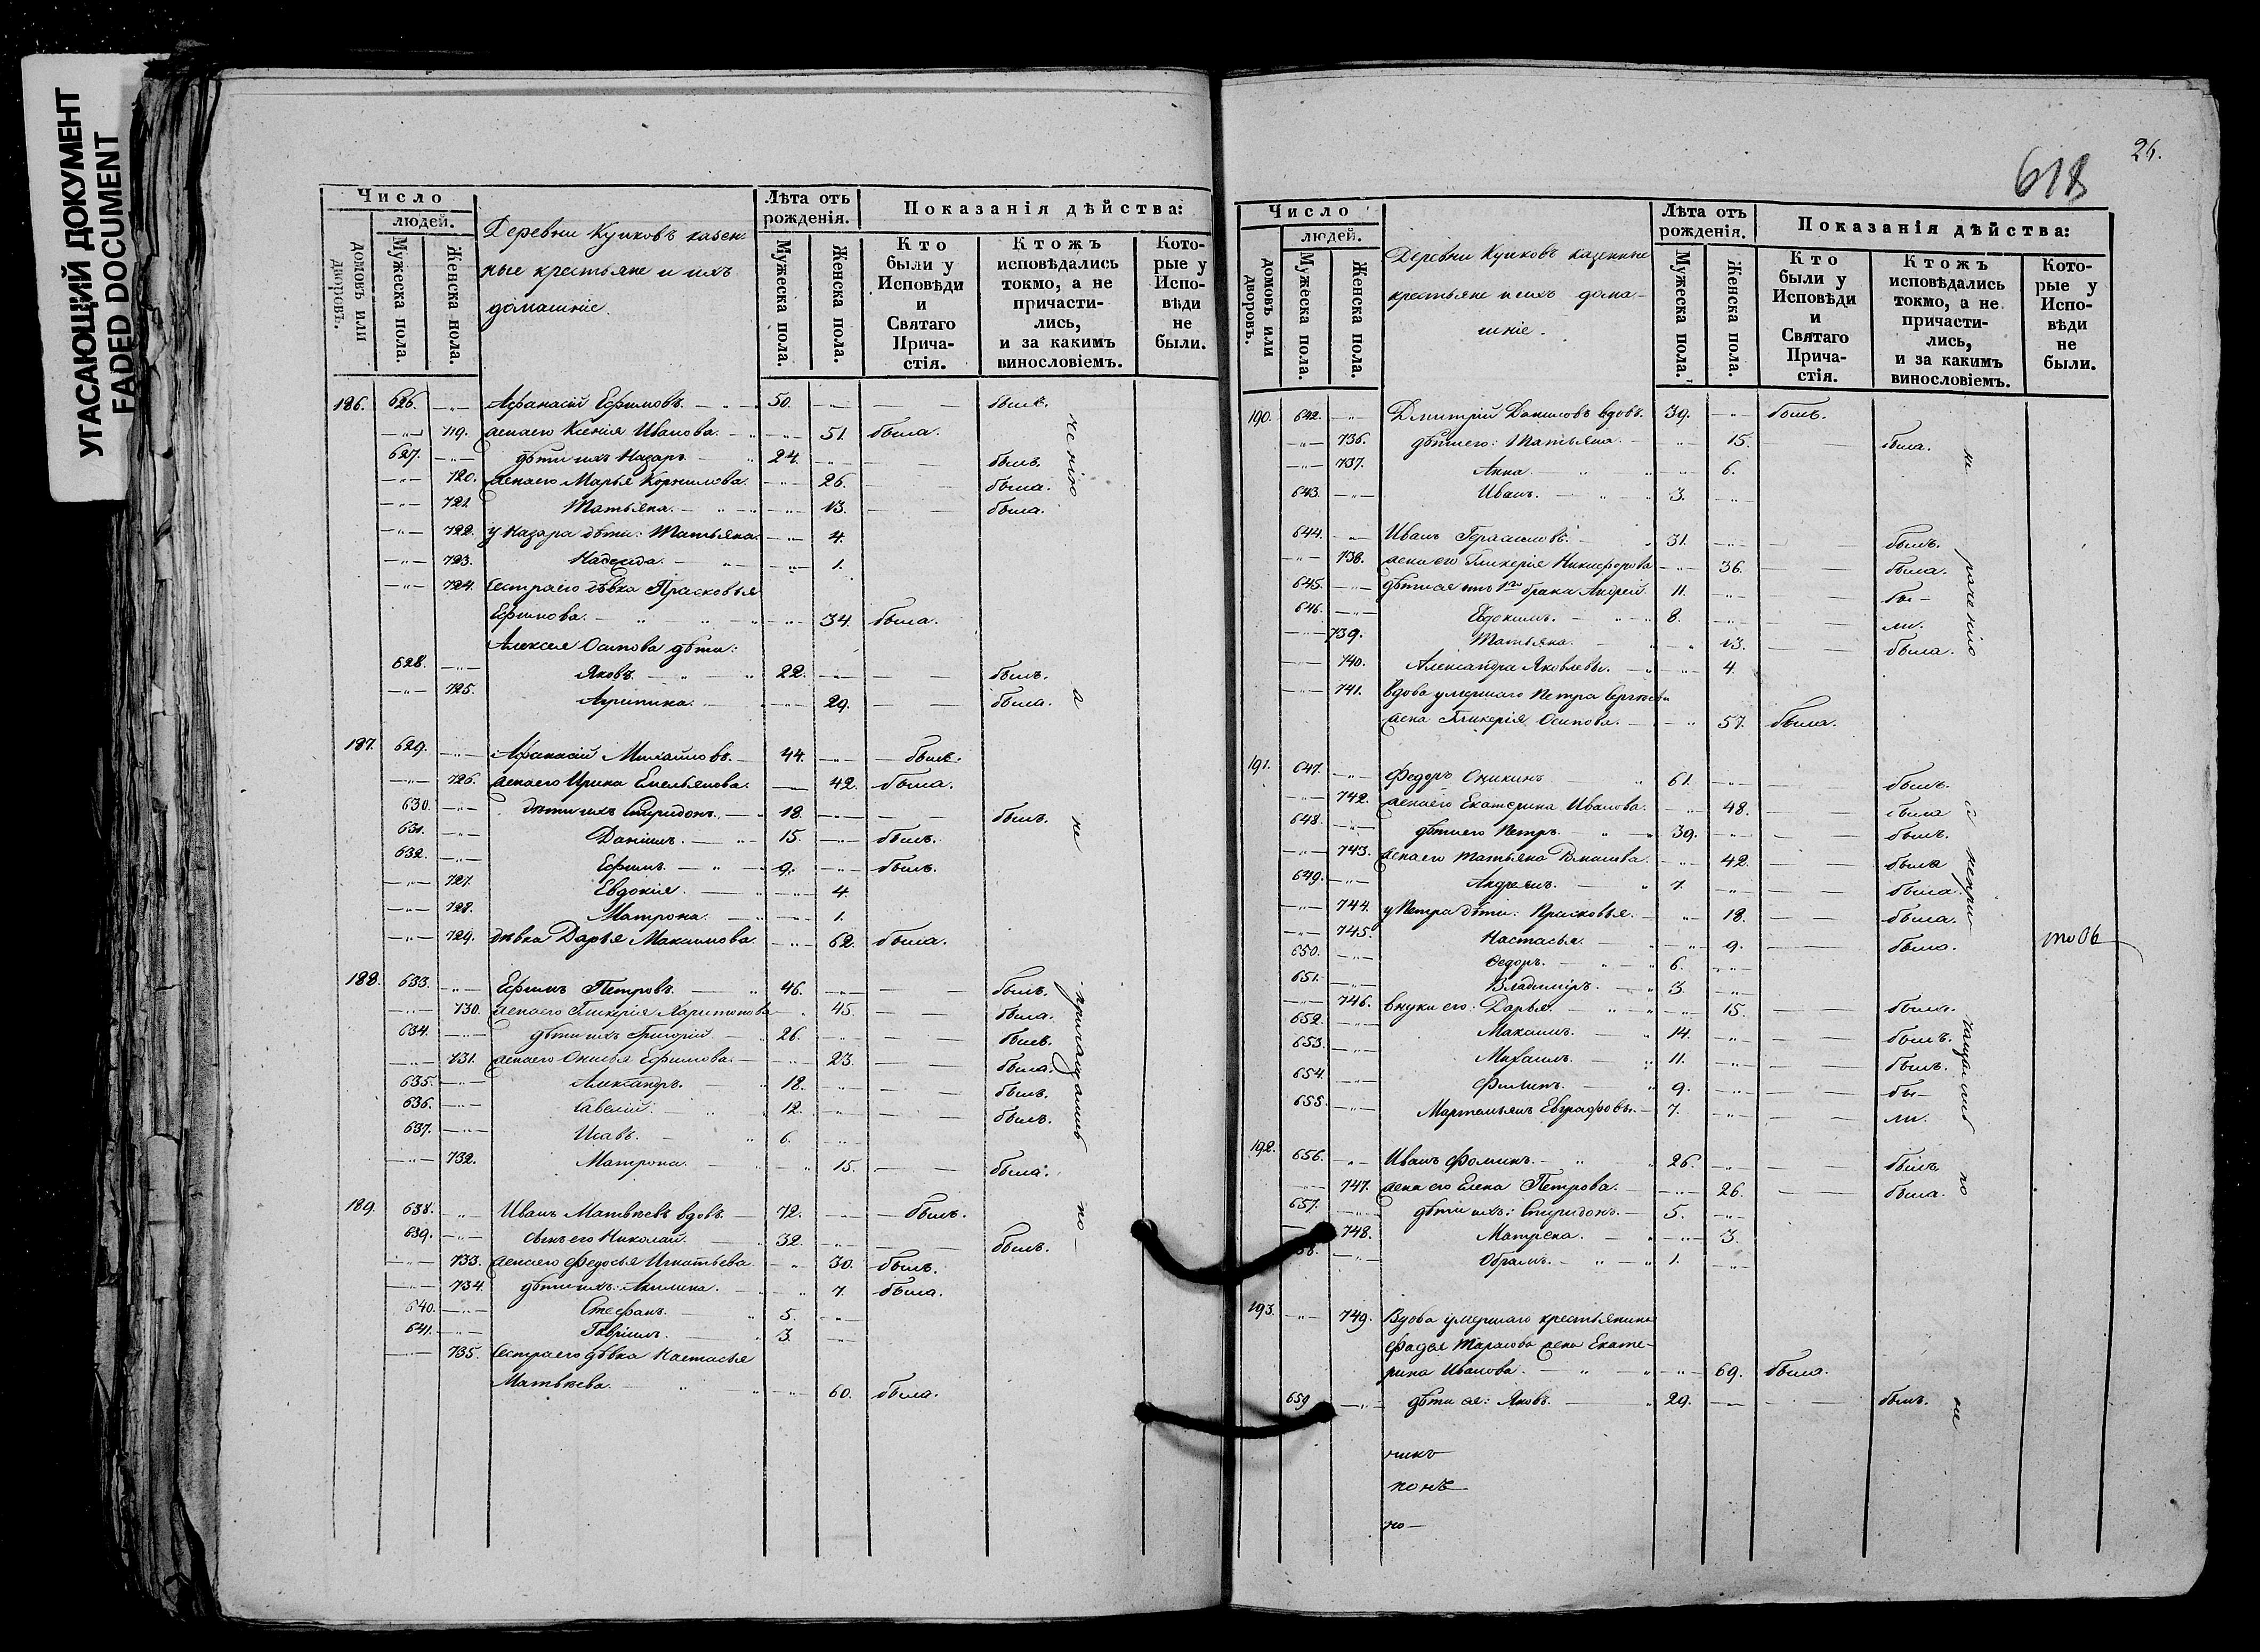 УГАСАЮЩИЙ ДОКУМЕНТ
FADED DOCUMENT
Число
людей.
домовъ или дворовъ.
Мужеска пола.
Женска пола.
Деревни Кучковъ казен-
ные крестьяне и ихъ
домашніе.
Лѣта отъ рожденія.
Мужеска пола.
Женска пола.
Показанія дѣйства:
Кто были у Исповѣди и Святаго Прича-стія.
Ктожъ исповѣдались токмо, а не причасти-лись, и за какимъ винословіемъ.
Кото-рые у Испо-вѣди не были.
186. 626. —„— Афанасій Ефимовъ. 50. — былъ.
—„— 719. жена его Ксенія Иванова. 51. была.
627. —„— дѣти ихъ Назаръ 24. — былъ.
—„— 720. жена его Марья Корнилова. 26. — была.
—„— 721. Татьяна. 13. — была.
—„— 722. у Назара дѣти: Татьяна. 4.
—„— 723. Надежда. 1.
—„— 724. Сестра его дѣвка Прасковья
Ефимова. 34. была.
Алексея Осипова дѣти:
628. —„— Яковъ. 22. — былъ.
—„— 725. Агрипина. 29. — была.
187. 629. —„— Афанасій Михайловъ. 44. — былъ.
—„— 726. жена его Ирина Емельянова. 42. была.
630. —„— дѣти ихъ Спиридонъ. 18. — былъ.
631. —„— Данилъ. 15. былъ.
632. —„— Ефимъ. 9. былъ.
—„— 727. Евдокія. 4.
—„— 728. Матрона. 1.
—„— 729. дѣвка Дарья Максимова. 62. была.
188. 633. —„— Ефимъ Петровъ. 46. — былъ.
—„— 730. жена его Гликерія Харитонова 45. — была.
634. —„— дѣти ихъ Григорій 26. — былъ.
—„— 731. жена его Ефимова. 23. — была.
635. —„— Александръ. 18. — былъ.
636. —„— Савелій. 12. — былъ.
637. —„— Исавъ. 6.
—„— 732. Матрона. 15. — была.
189. 638. —„— Иванъ Матвѣевъ вдовъ. 72. — былъ.
639. —„— сынъ его Николай. 32. — былъ.
—„— 733. жена его Федосья Игнатьева. 30. былъ.
—„— 734. дѣти ихъ: Акилина. 7. была.
640. —„— Стефанъ. 5.
641. —„— Гавріилъ. 3.
—„— 735. Сестра его дѣвка Настасья
Матвѣева. 60. была.
ченію
а
не
причащались
по-
618
26.
Число
людей.
домовъ или дворовъ.
Мужеска пола.
Женска пола.
Деревни Кучковъ казенные
крестьяне и ихъ дома-
шніе.
Лѣта отъ рожденія.
Мужеска пола.
Женска пола.
Показанія дѣйства:
Кто были у Исповѣди и Святаго Прича-стія.
Ктожъ исповѣдались токмо, а не причасти-лись, и за какимъ винословіемъ.
Кото-рые у Испо-вѣди не были.
190. 642. —„— Дмитрій Даниловъ вдовъ. 39. былъ.
—„— 736. дѣти его: Татьяна. 15. — была.
—„— 737. Анна. 6.
643. —„— Иванъ. 3.
644. —„— Иванъ Герасимовъ. 31. — былъ.
—„— 738. жена его Гликерія Никифорова 36. — была.
645. —„— дѣти ея отъ 1го брака Андрей. 11. — бы-
646. —„— Евдокимъ. 8. — ли.
—„— 739. Татьяна. 13. — была.
—„— 740. Александра Яковлева. 4.
—„— 741. Вдова умершаго Петра Сергѣева
жена Гликерія Осипова. 57. была.
191. 647. —„— Федоръ Оникинъ 61. — былъ.
—„— 742. жена его Екатерина Иванова. 48. — была
648. —„— дѣти его Петръ 39. — былъ.
—„— 743. жена его Татьяна 42. — была
649. —„— Андреянъ. 7. — была.
—„— 744. у Петра дѣти: Прасковья. 18. — была.
—„— 745. Настасья. 9. — была.
650. —„— Федоръ. 6.
651. —„— Владиміръ. 3.
—„— 746. внуки его: Дарья. 15. — была.
652. —„— Максимъ. 14. — былъ.
653. —„— Михаилъ. 11. — былъ.
654. —„— Филипъ. 9. — бы-
655. —„— Мартемьянъ Евграфовъ. 7. — ли.
192. 656. —„— Иванъ Фоминъ. 26. — былъ
—„— 747. жена его Елена Петрова. 26. — была.
657. —„— дѣти ихъ: Спиридонъ. 5.
—„— 748. Матрена. 3.
58. —„— Обрамъ. 1.
193. —„— 749. Вдова умершаго крестьянина
Фадея Тарасова жена Екате-
рина Иванова. 69. была.
659 —„— дѣти ея: Яковъ. 29. — былъ.
н
раченію
а непри
чащались
по
не
никъ
понъ
но—